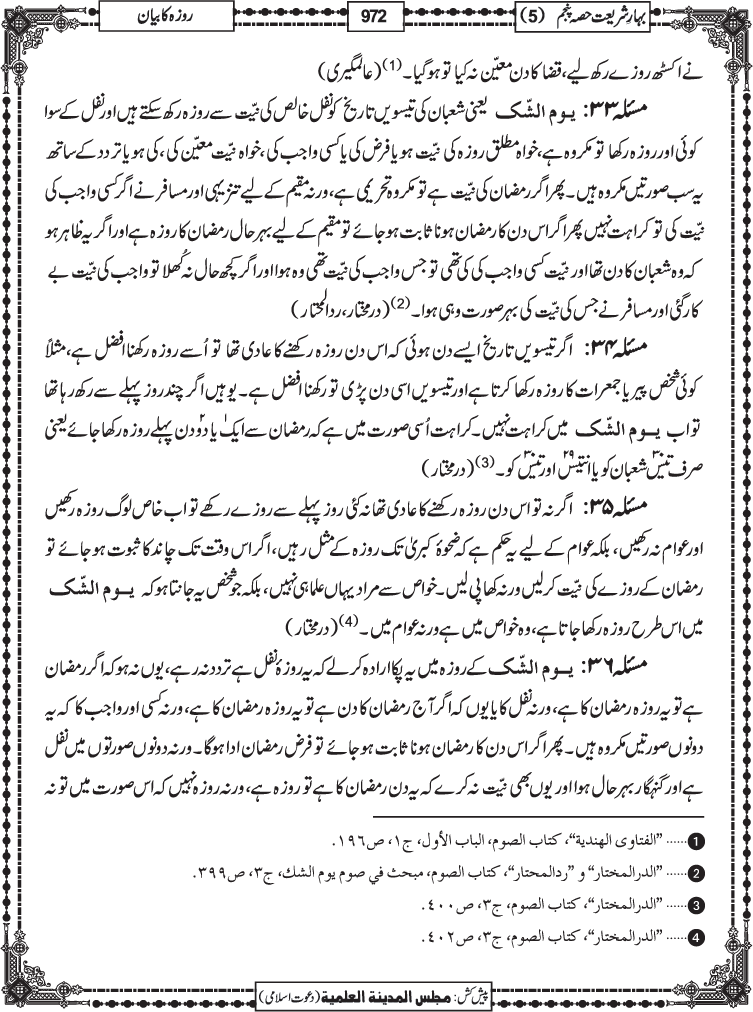 بہار شریعت حصہ پنجم (5)
972
روزہ کا بیان
نے اکسٹھ روزے رکھ لیے، قضا کا دن معیّن نہ کیا تو ہوگیا۔(1) (عالمگیری)
مسئلہ ۳۳: یوم الشّک یعنی شعبان کی تیسویں تاریخ کو نفل خالص کی نیّت سے روزہ رکھ سکتے ہیں اور نفل کے سوا
کوئی اور روزہ رکھا تو مکروہ ہے، خواہ مطلق روزہ کی نیّت ہو یا فرض کی یا کسی واجب کی، خواہ نیّت معیّن کی، کی ہو یا تردد کے ساتھ
یہ سب صورتیں مکروہ ہیں۔ پھر اگر رمضان کی نیّت ہے تو مکروہ تحریمی ہے، ورنہ مقیم کے لیے تنزیہی اور مسافر نے اگر کسی واجب کی
نیّت کی تو کراہت نہیں پھر اگر اس دن کا رمضان ہونا ثابت ہو جائے تو مقیم کے لیے بہرحال رمضان کا روزہ ہے اور اگر یہ ظاہر ہو
کہ وہ شعبان کا دن تھا اور نیّت کسی واجب کی کی تھی تو جس واجب کی نیّت تھی وہ ہوا اور اگر کچھ حال نہ کُھلا تو واجب کی نیّت بے
کار گئی اور مسافر نے جس کی نیّت کی بہر صورت وہی ہوا۔(2) (درمختار، ردالمحتار)
مسئلہ ۳۴: اگر تیسویں تاریخ ایسے دن ہوئی کہ اس دن روزہ رکھنے کا عادی تھا تو اُسے روزہ رکھنا افضل ہے، مثلاً
کوئی شخص پیر یا جمعرات کا روزہ رکھا کرتا ہے اور تیسویں اسی دن پڑی تو رکھنا افضل ہے۔ یوہیں اگر چند روز پہلے سے رکھ رہا تھا
تو اب یوم الشّک میں کراہت نہیں۔ کراہت اُسی صورت میں ہے کہ رمضان سے ایک۱ یا دو۲ دن پہلے روزہ رکھا جائے یعنی
صرف تیس۳۰ شعبان کو یا انتیس۲۹ اور تیس۳۰ کو۔(3) (درمختار)
مسئلہ ۳۵: اگر نہ تو اس دن روزہ رکھنے کا عادی تھا نہ کئی روز پہلے سے روزے رکھے تو اب خاص لوگ روزہ رکھیں
اور عوام نہ رکھیں، بلکہ عوام کے لیے یہ حکم ہے کہ ضحوۂ کبریٰ تک روزہ کے مثل رہیں، اگر اس وقت تک چاند کا ثبوت ہو جائے تو
رمضان کے روزے کی نیّت کر لیں ورنہ کھا پی لیں۔ خواص سے مراد یہاں علما ہی نہیں، بلکہ جو شخص یہ جانتا ہو کہ یوم الشّک
میں اس طرح روزہ رکھا جاتا ہے، وہ خواص میں ہے ورنہ عوام میں۔(4) (درمختار)
مسئلہ ۳۶: یوم الشّک کے روزہ میں یہ پکا ارادہ کر لے کہ یہ روزہ نفل ہے تردد نہ رہے، یوں نہ ہو کہ اگر رمضان
ہے تو یہ روزہ رمضان کا ہے، ورنہ نفل کا یا یوں کہ اگر آج رمضان کا دن ہے تو یہ روزہ رمضان کا ہے، ورنہ کسی اور واجب کا کہ یہ
دونوں صورتیں مکروہ ہیں۔ پھر اگر اس دن کا رمضان ہونا ثابت ہو جائے تو فرض رمضان ادا ہوگا۔ ورنہ دونوں صورتوں میں نفل
ہے اور گنہگار بہرحال ہوا اور یوں بھی نیّت نہ کرے کہ یہ دن رمضان کا ہے تو روزہ ہے، ورنہ روزہ نہیں کہ اس صورت میں تو نہ
1 ...... ”الفتاوى الهندية“، كتاب الصوم، الباب الأول، ج١، ص١٩٦.
2 ...... ”الدرالمختار“ و ”ردالمحتار“، كتاب الصوم، مبحث في صوم يوم الشك، ج٣، ص٣٩٩.
3 ...... ”الدرالمختار“، كتاب الصوم، ج٣، ص٤٠٠.
4 ...... ”الدرالمختار“، كتاب الصوم، ج٣، ص٤٠٢.
پیش کش: مجلس المدینة العلمیة (دعوت اسلامی)